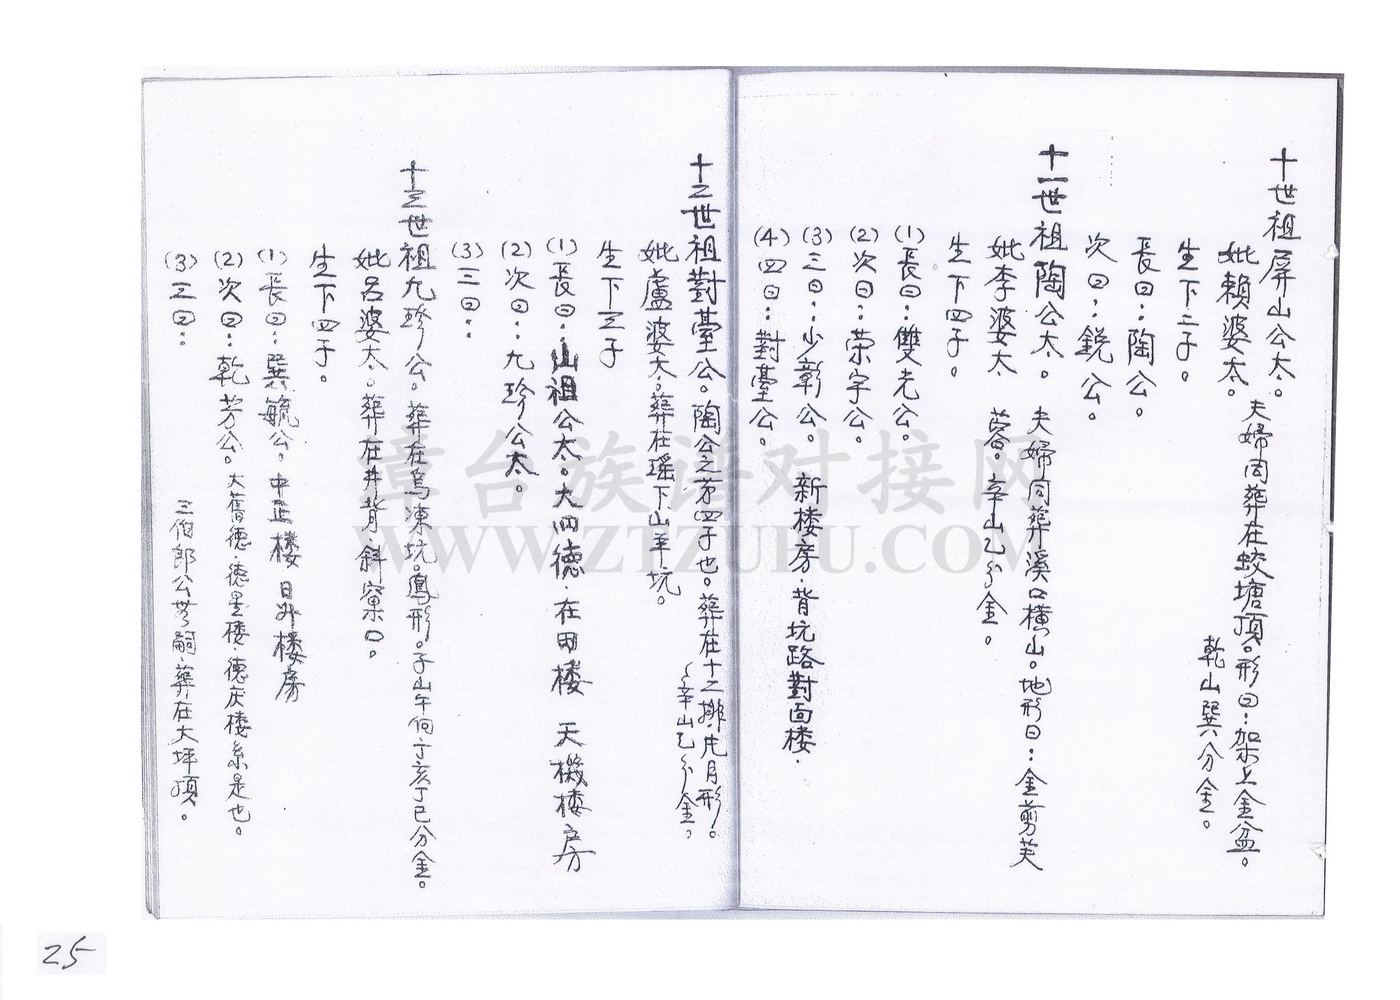 十世祖屏山公太。夫婦同葬在蛟塘頂。形曰：架上金盆。
妣賴婆太。乾山巽分金。
生下二子。
長曰：陶公。
次曰：銳公。
十一世祖陶公太。夫婦同葬溪口橫山。地形曰：金剪芙
妣李婆太 蓉。辛山乙分金。
生下四子。
(1)長曰：雙光公。
(2)次曰：荣宇公。
(3)三曰：少彰公。新楼房．背坑路對面楼．
(4)四曰：對臺公。
十二世祖對臺公。陶公之第四子也。葬在十二排．月形。
辛山乙分金，
妣盧婆太。葬在瑶下山羊坑。
生下三子
(1)長曰：山祖公太。大四德．在田楼 天機楼房
(2)次曰：九珍公太。
(3)三曰：
十三世祖九珍公。葬在烏凍坑。鳳形。子山午向亥丁巳分金。
妣呂婆太。葬在井背．斜窠口。
生下四子。
(1)長曰：巽毓公。中正楼 日升楼房
(2)次曰：乾芳公。大舊德．德星楼．德庆楼系是也。
(3)三曰： 三伯郎公嗣．葬在大坪頂。
章台族谱对接网
WWW.ZTZUPU.COM
25